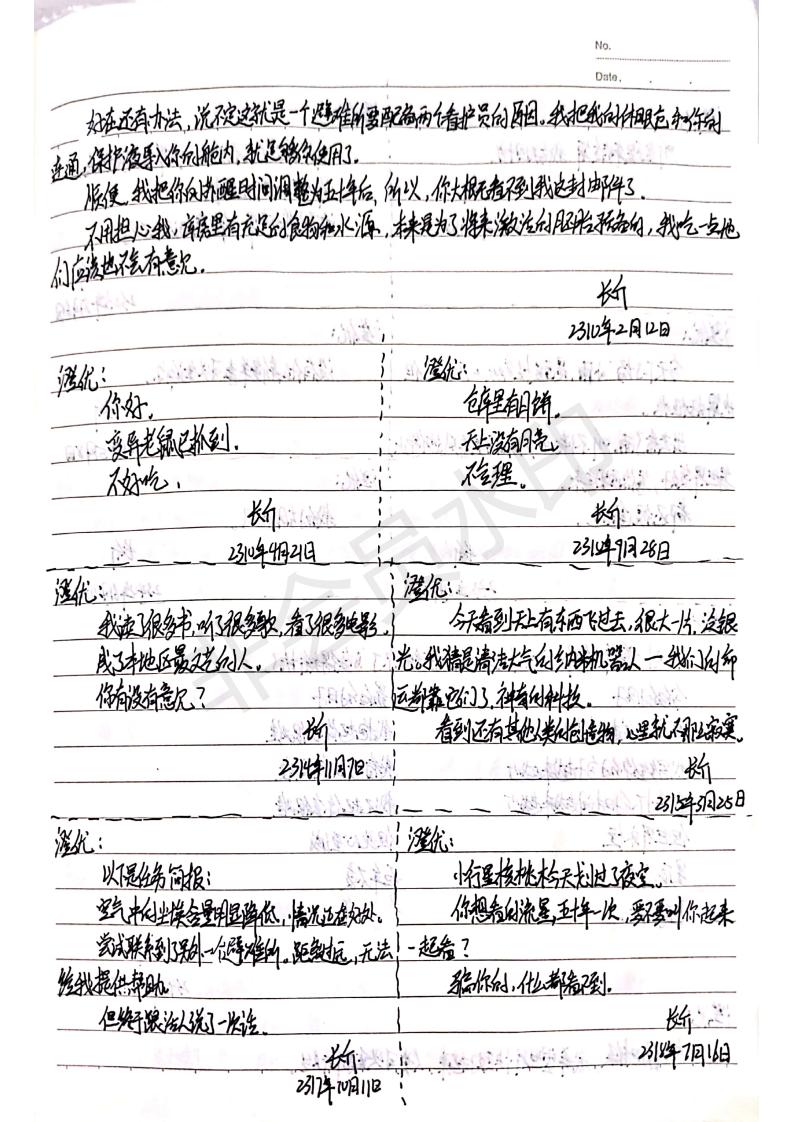 No.
Date.
好在还有办法，说不定这就是一个避难所要配备两个看护员的原因。我把我的休眠仓和你的
连通，保护液导入你的舱内，就足够你使用了。
顺便，我把你的苏醒时间调整为五十年后，所以，你大概无看不到我这封邮件了。
不用担心我，库房里有充足的食物和水源，本来是为了将来激活的胚胎预备的，我吃一点他
们应该也不会有意见。
长介
2310年2月12日
澄优：
你好。
变异老鼠已抓到。
不好吃。
长介
2310年4月21日
澄优：
仓库里有月饼。
天上没有月亮。
不合理。
长介
9月28日
澄优：
我读了很多书，听了很多歌，看了很多电影，
成了本地区最文艺的人。
你有没有意见？
长介
2314年11月7日
澄优：
今天看到天上有东西飞过去，很大一片，泛银
光。我猜是清洁大气的纳米机器人——我们的命
运都靠它们了，神奇的科技。
看到还有其他人类的创造物，心里就不那么寂寞。
长介
2315年3月25日
澄优：
以下是任务简报：
空气中的尘埃含量明显降低，情况正在好处。
尝试联系到了另外一个避难所。距离过远，无法
给我提供帮助。
但终于跟活人说了一次话。
长介
2317年10月11日
澄优：
小行星核桃木今天划过了夜空。
你想看的流星，五十年一次，要不要叫你起来
一起看？
骗你的，什么都看不到。
长介
2318年7月16日
非会员水印